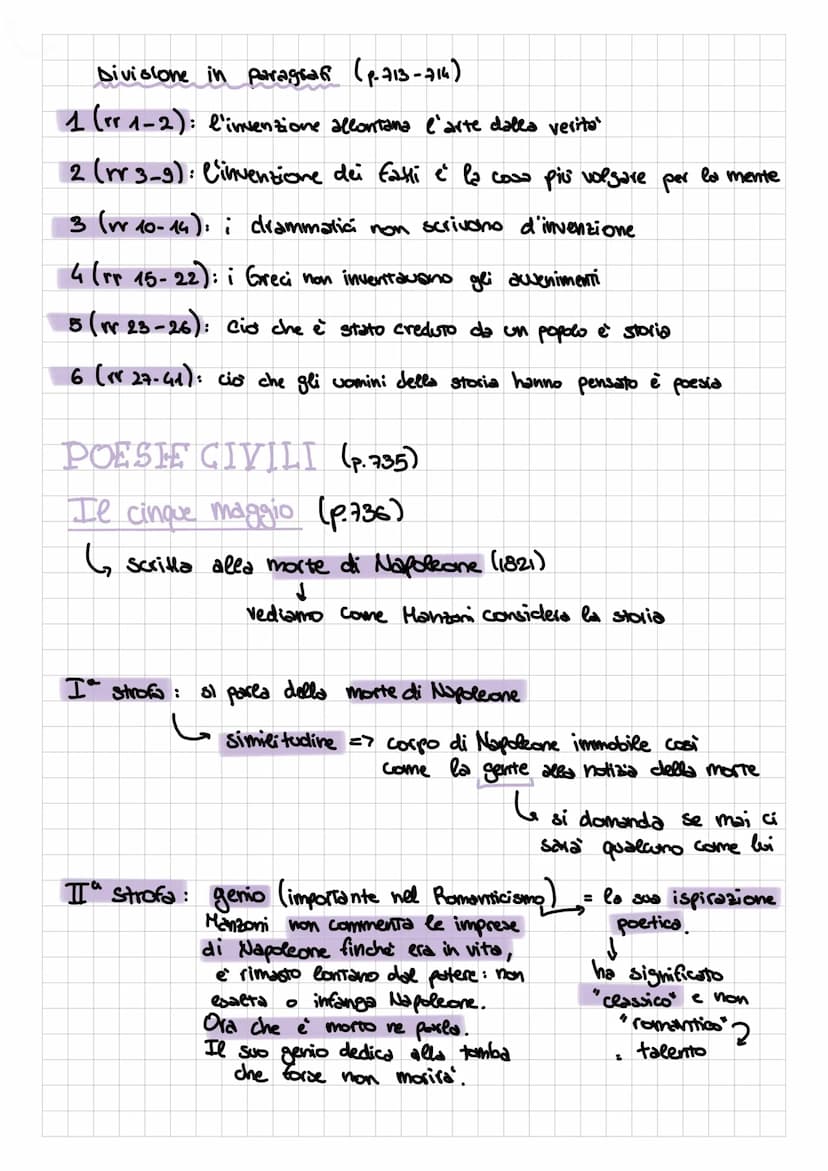 Divisione in paragrafi (p.713-714)
1 (rr 1-2): l'invenzione allontana l'arte dalla verità
2 (rr 3-9): l'invenzione dei fatti è la cosa più volgare per la mente
3 (rr 10-14): i drammatici non scrivono d'invenzione
4 (rr 15-22): i Greci non inventavano gli avvenimenti
5 (rr 23-26): ciò che è stato creduto da un popolo è storia
6 (rr 27-41): ciò che gli uomini della storia hanno pensato è poesia
POESIE CIVILI (p.735)
Il cinque maggio (p.736)
↳ scritta alla morte di Napoleone (1821)
↓
vediamo come Manzoni considera la storia
Iª strofa: si parla della morte di Napoleone
↳ similitudine => corpo di Napoleone immobile così
come la gente alla notizia della morte
↳ si domanda se mai ci
sarà qualcuno come lui
IIª strofa: genio (importante nel Romanticismo) = la sua ispirazione
Manzoni non commenta le imprese poetica.
di Napoleone finché era in vita, ↓
è rimasto lontano dal potere: non ha significato
esalta o infanga Napoleone. "classico" e non
Ora che è morto ne parla. "romantico"
Il suo genio dedica alla tomba : talento
che forse non morirà.